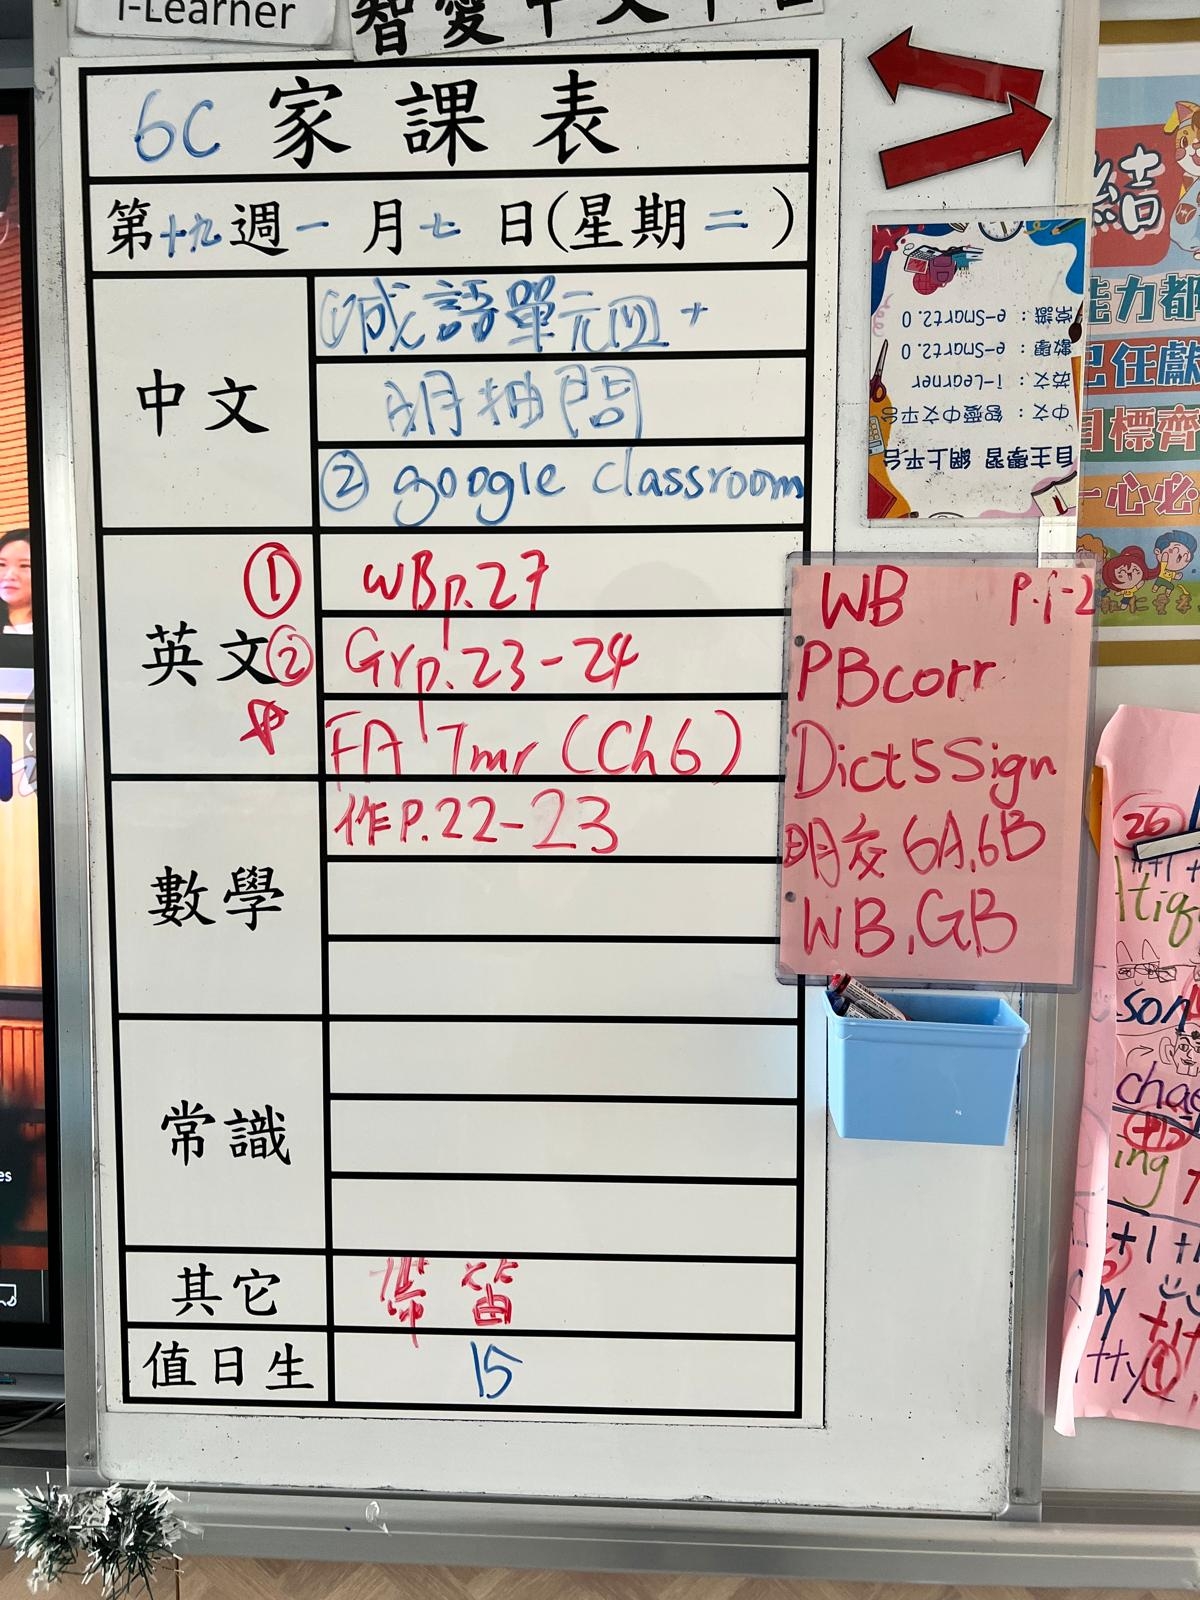 i-Learner
智愛中文平台
6C 家課表
第十九週一月七日(星期二)
中文
①成語單元四+
明抽問
② google classroom
英文
① WBp.27
② Grp.23-24
☆ FA Tmr (Ch6)
數學
作P.22-23
常識
其它
帶笛
值日生
15
自主學習網上平台
中文：智愛中文平台
英文：i-Learner
數學：e-Smart2.0
常識：e-Smart2.0
WB P.1-2
PBcorr
Dict5Sign
明交 6A,6B
WB,GB
結
能力都
己任獻
目標齊
一心必
26
son
ing